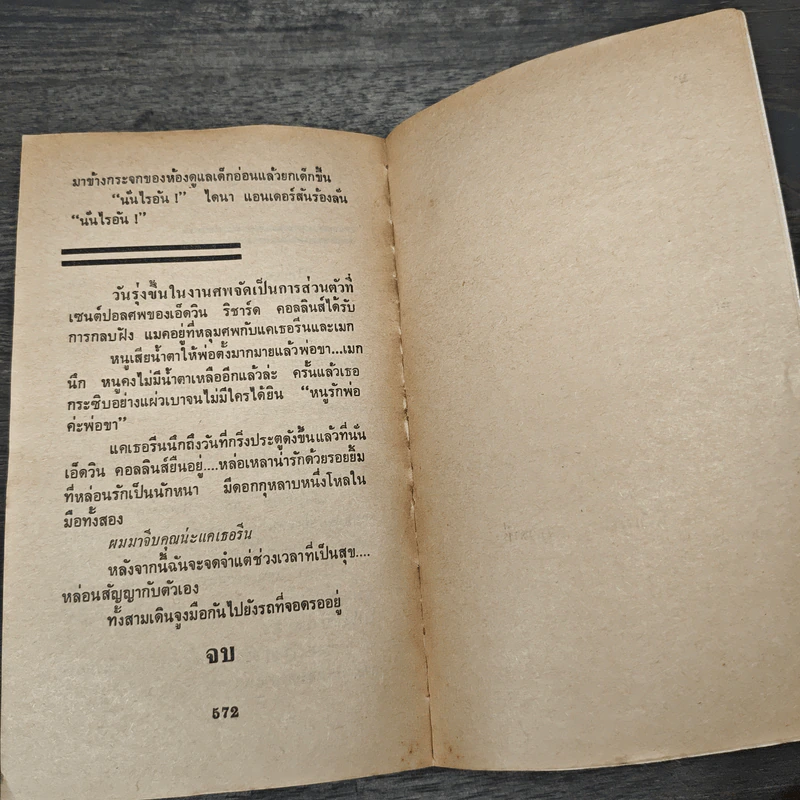 มาข้างกระจกของห้องดูแลเด็กอ่อนแล้วยกเด็กขึ้น
“นั่นไรอัน !” ไดนา แอนเดอร์สันร้องลั่น
“นั่นไรอัน !”
วันรุ่งขึ้นในงานศพจัดเป็นการส่วนตัวที่
เซนต์ปอลศพของเอ็ดวิน ริชาร์ด คอลลินส์ได้รับ
การกลบฝัง แมคอยู่ที่หลุมศพกับแคเธอรีนและเมก
หนูเสียน้ำตาให้พ่อตั้งมากมายแล้วพ่อขา...เมก
นึก หนูคงไม่มีน้ำตาเหลืออีกแล้วล่ะ ครั้นแล้วเธอ
กระซิบอย่างแผ่วเบาจนไม่มีใครได้ยิน “หนูรักพ่อ
ค่ะพ่อขา”
แคเธอรีนนึกถึงวันที่กริ่งประตูดังขึ้นแล้วที่นั่น
เอ็ดวิน คอลลินส์ยืนอยู่....หล่อเหลาน่ารักด้วยรอยยิ้ม
ที่หล่อนรักเป็นนักหนา มีดอกกุหลาบหนึ่งโหลใน
มือทั้งสอง
ผมมาจีบคุณน่ะแคเธอรีน
หลังจากนี้ฉันจะจดจำแต่ช่วงเวลาที่เป็นสุข....
หล่อนสัญญากับตัวเอง
ทั้งสามเดินจูงมือกันไปยังรถที่จอดรออยู่
จบ
572